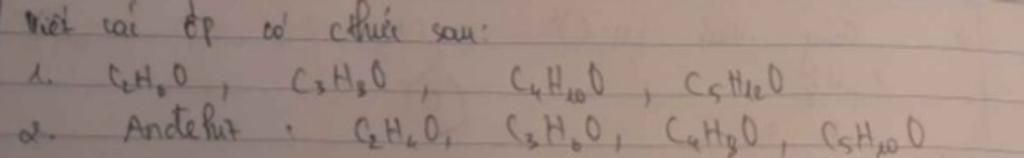 Viết các đp có cthức sau:
1. C₂H₆O, C₃H₈O, C₄H₁₀O, C₅H₁₂O
2. Anđehit: C₂H₄O, C₃H₆O, C₄H₈O, C₅H₁₀O